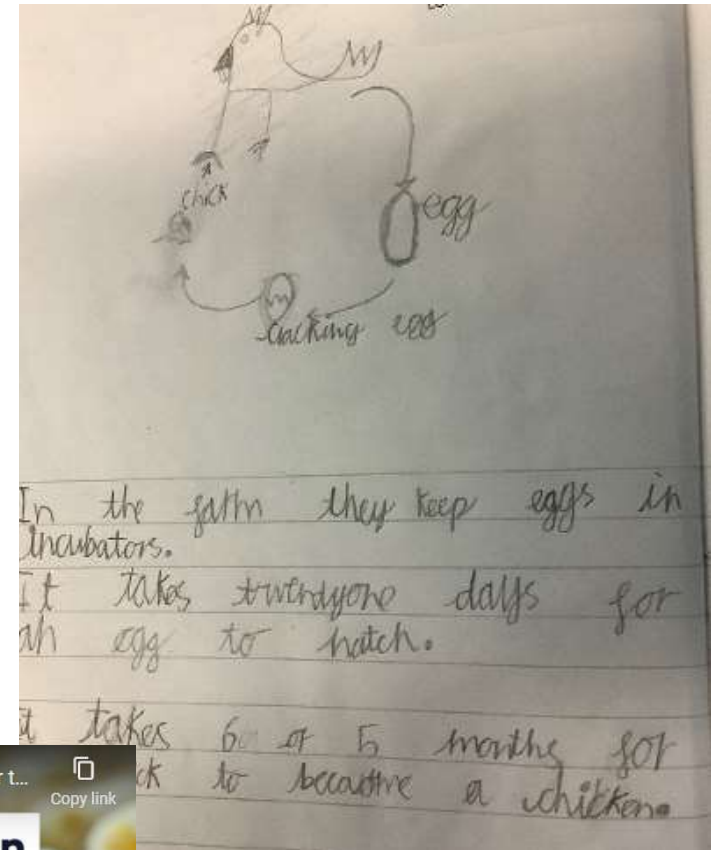 chick
egg
cracking egg
In the farm they keep eggs in
incubators.
It takes twentyone days for
an egg to hatch.
it takes 6 or 5 months for
ck to become a chicken.
r t...
Copy link
n